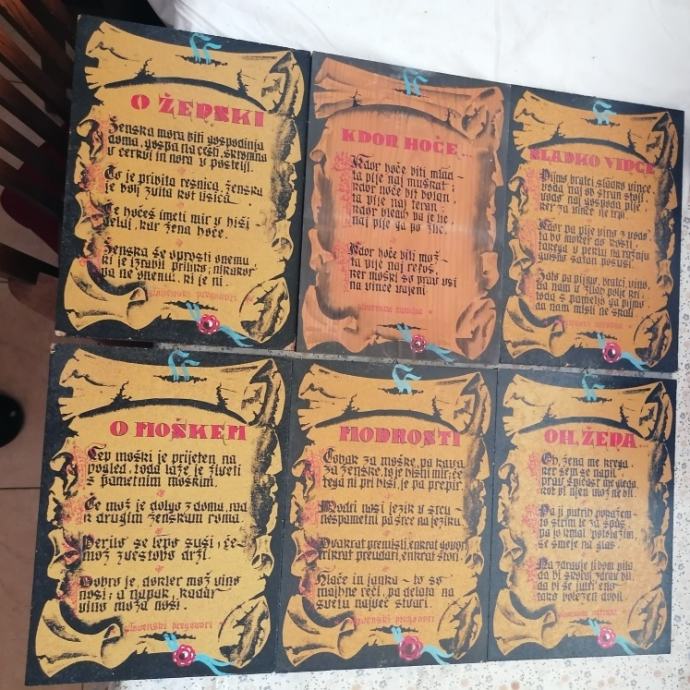 O ŽENSKI
Ženska mora biti gospodinja
doma, gospa na cesti, skromna
v cerkvi in nora v postelji.
To je pribita resnica, ženska
je bolj zvita kot lisica.
Če hočeš imeti mir v hiši
delaj, kar žena hoče.
Ženska še oprosti onemu
ki je izrabil priliko, nikakor
pa ne onemu, ki je ni
KDOR HOČE...
Kdor hoče biti mlad
ta pije naj muškat;
kdor hoče bit bolan
ta pije naj teran;
kdor bledih pa je lic
naj pije ga po žlic.
Kdor hoče biti mož
ta pije naj refoš,
ker moški so prav vsi
na vince vajeni.
SLADKO VINCE
Pijmo bratci, sladko vince,
voda naj ob stran stoji,
vode naj gospoda pije
ker za vince ne trpi.
Kdor pa pije vino z vodo
ta bo moker do kosti,
takega v peklu na ražnju
satan posuši.
Zato pa pijmo, bratci, vino,
da nam v žilah polje kri,
toda s pametjo ga pijmo
da nam misli ne skali.
O MOŠKEM
Lep moški je prijeten na
pogled, toda laže je živeti
s pametnim moškim.
Če mož je dolgo z doma, rad
k drugim ženskam roma
Perilo se lepo suši, če
mož zvestobo drži.
Dobro je, dokler mož vino
nosi, a narobe, kadar
vino moža nosi.
slovenski pregovori
MODROSTI
Tobak za moške, pa kava
za ženske, to je hišni mir, če
tega ni pri hiši, je pa prepir.
Modri nosi jezik v srcu -
nespametni pa srce na jeziku.
Dvakrat premisli, enkrat govori
trikrat preudari, enkrat stori.
Hlače in janka - to so
majhne reči, pa delata na
svetu največ stvari.
slovenski pregovori
OH, ŽENA
Oh, žena me krega
ker sem se napil,
prav špičast me gleda
kot bi njen mož ne bil.
Pa ji putrih pokažem
to strim le za špas,
pa jo kmal potolažim,
se smeje na glas
Na zdravje ti bom pila
da bi skoraj zdrav bil,
da bi še jutri eno
tako polezen dobil.